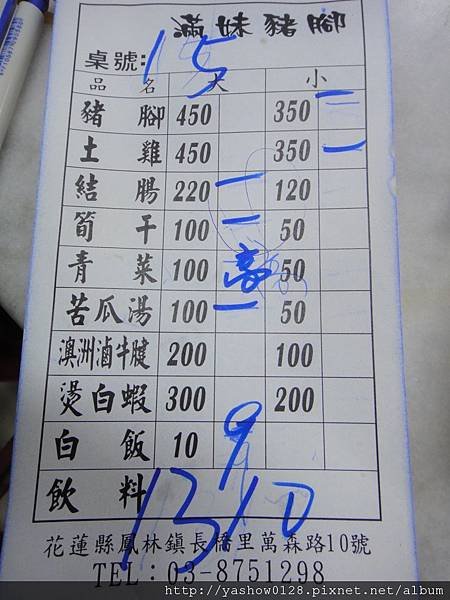 滿妹豬腳
桌號: 15
品名 大 小
豬腳 450 350 一
土雞 450 350 一
結腸 220 一 120
筍干 100 一 50
青菜 100 高 50
苦瓜湯 100 一 50
澳洲滷牛腱 200 100
燙白蝦 300 200
白飯 10 9
飲料 1310
花蓮縣鳳林鎮長橋里萬森路10號
TEL：03-8751298
http://yashow0128.pixnet.net/album